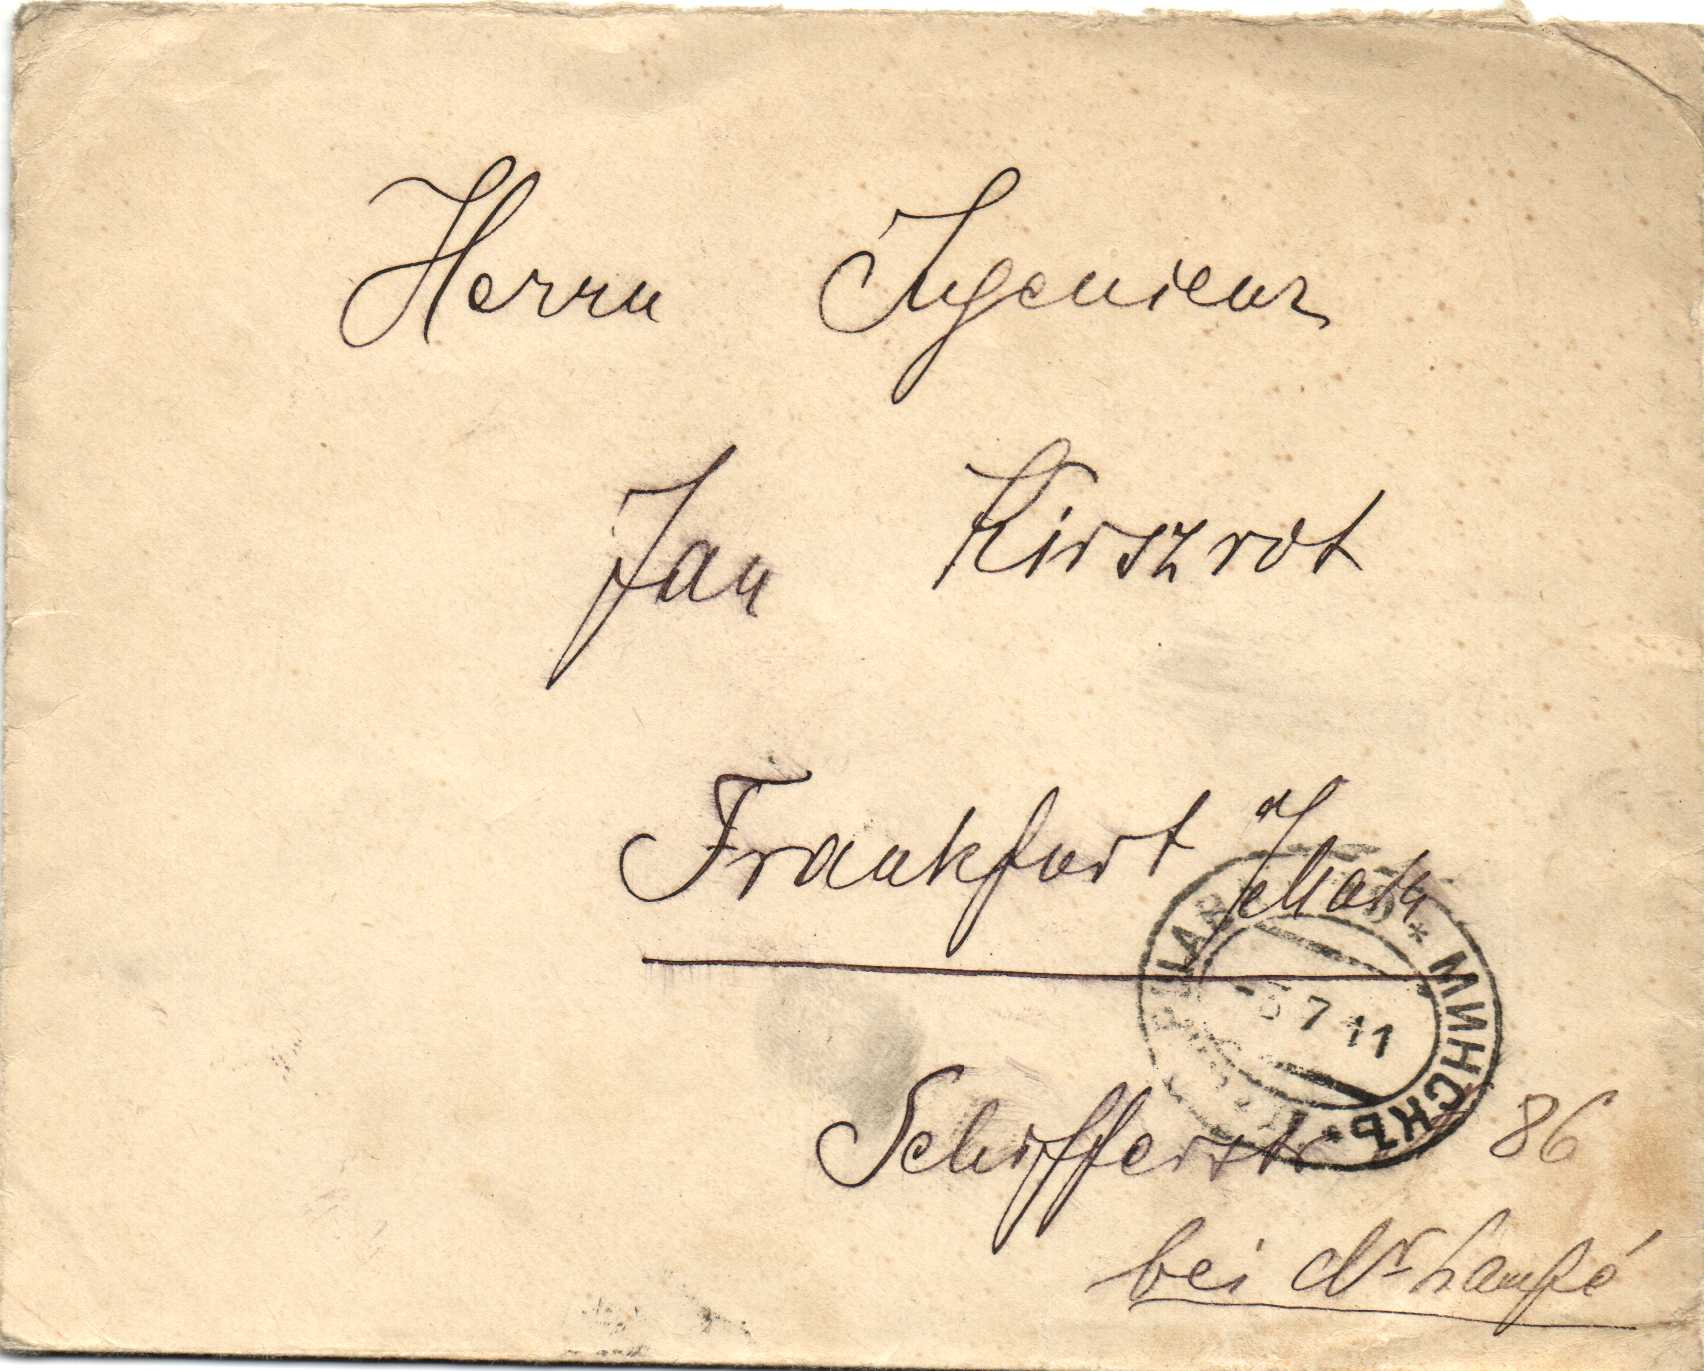 Herrn Ingenieur
Jan Kirszrot
Frankfurt a/Main
* МИНСКЪ *
7 11
Schifferstr 86
bei Dr Lampé